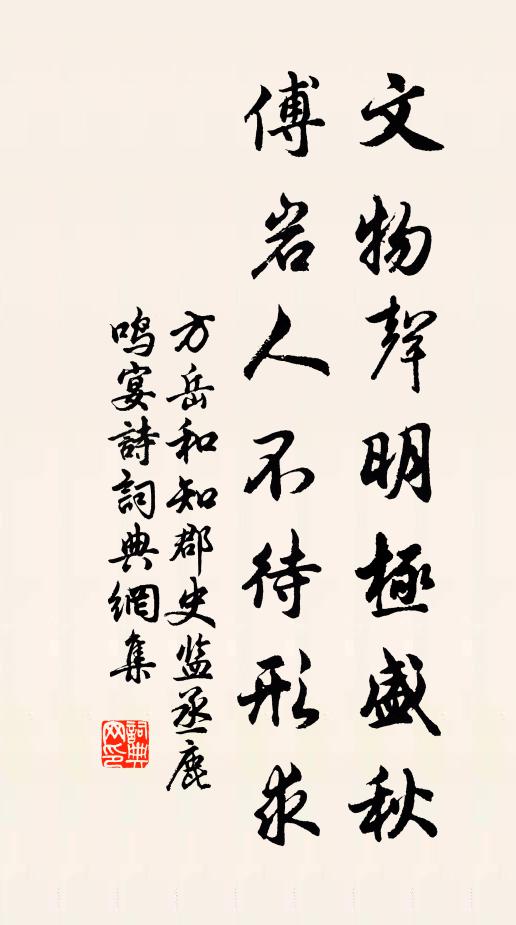 文物聲明極盛秋
傅岩人不待形求
方岳和知郡史监丞鹿
鸣宴詩詞典網集
詞典
网印